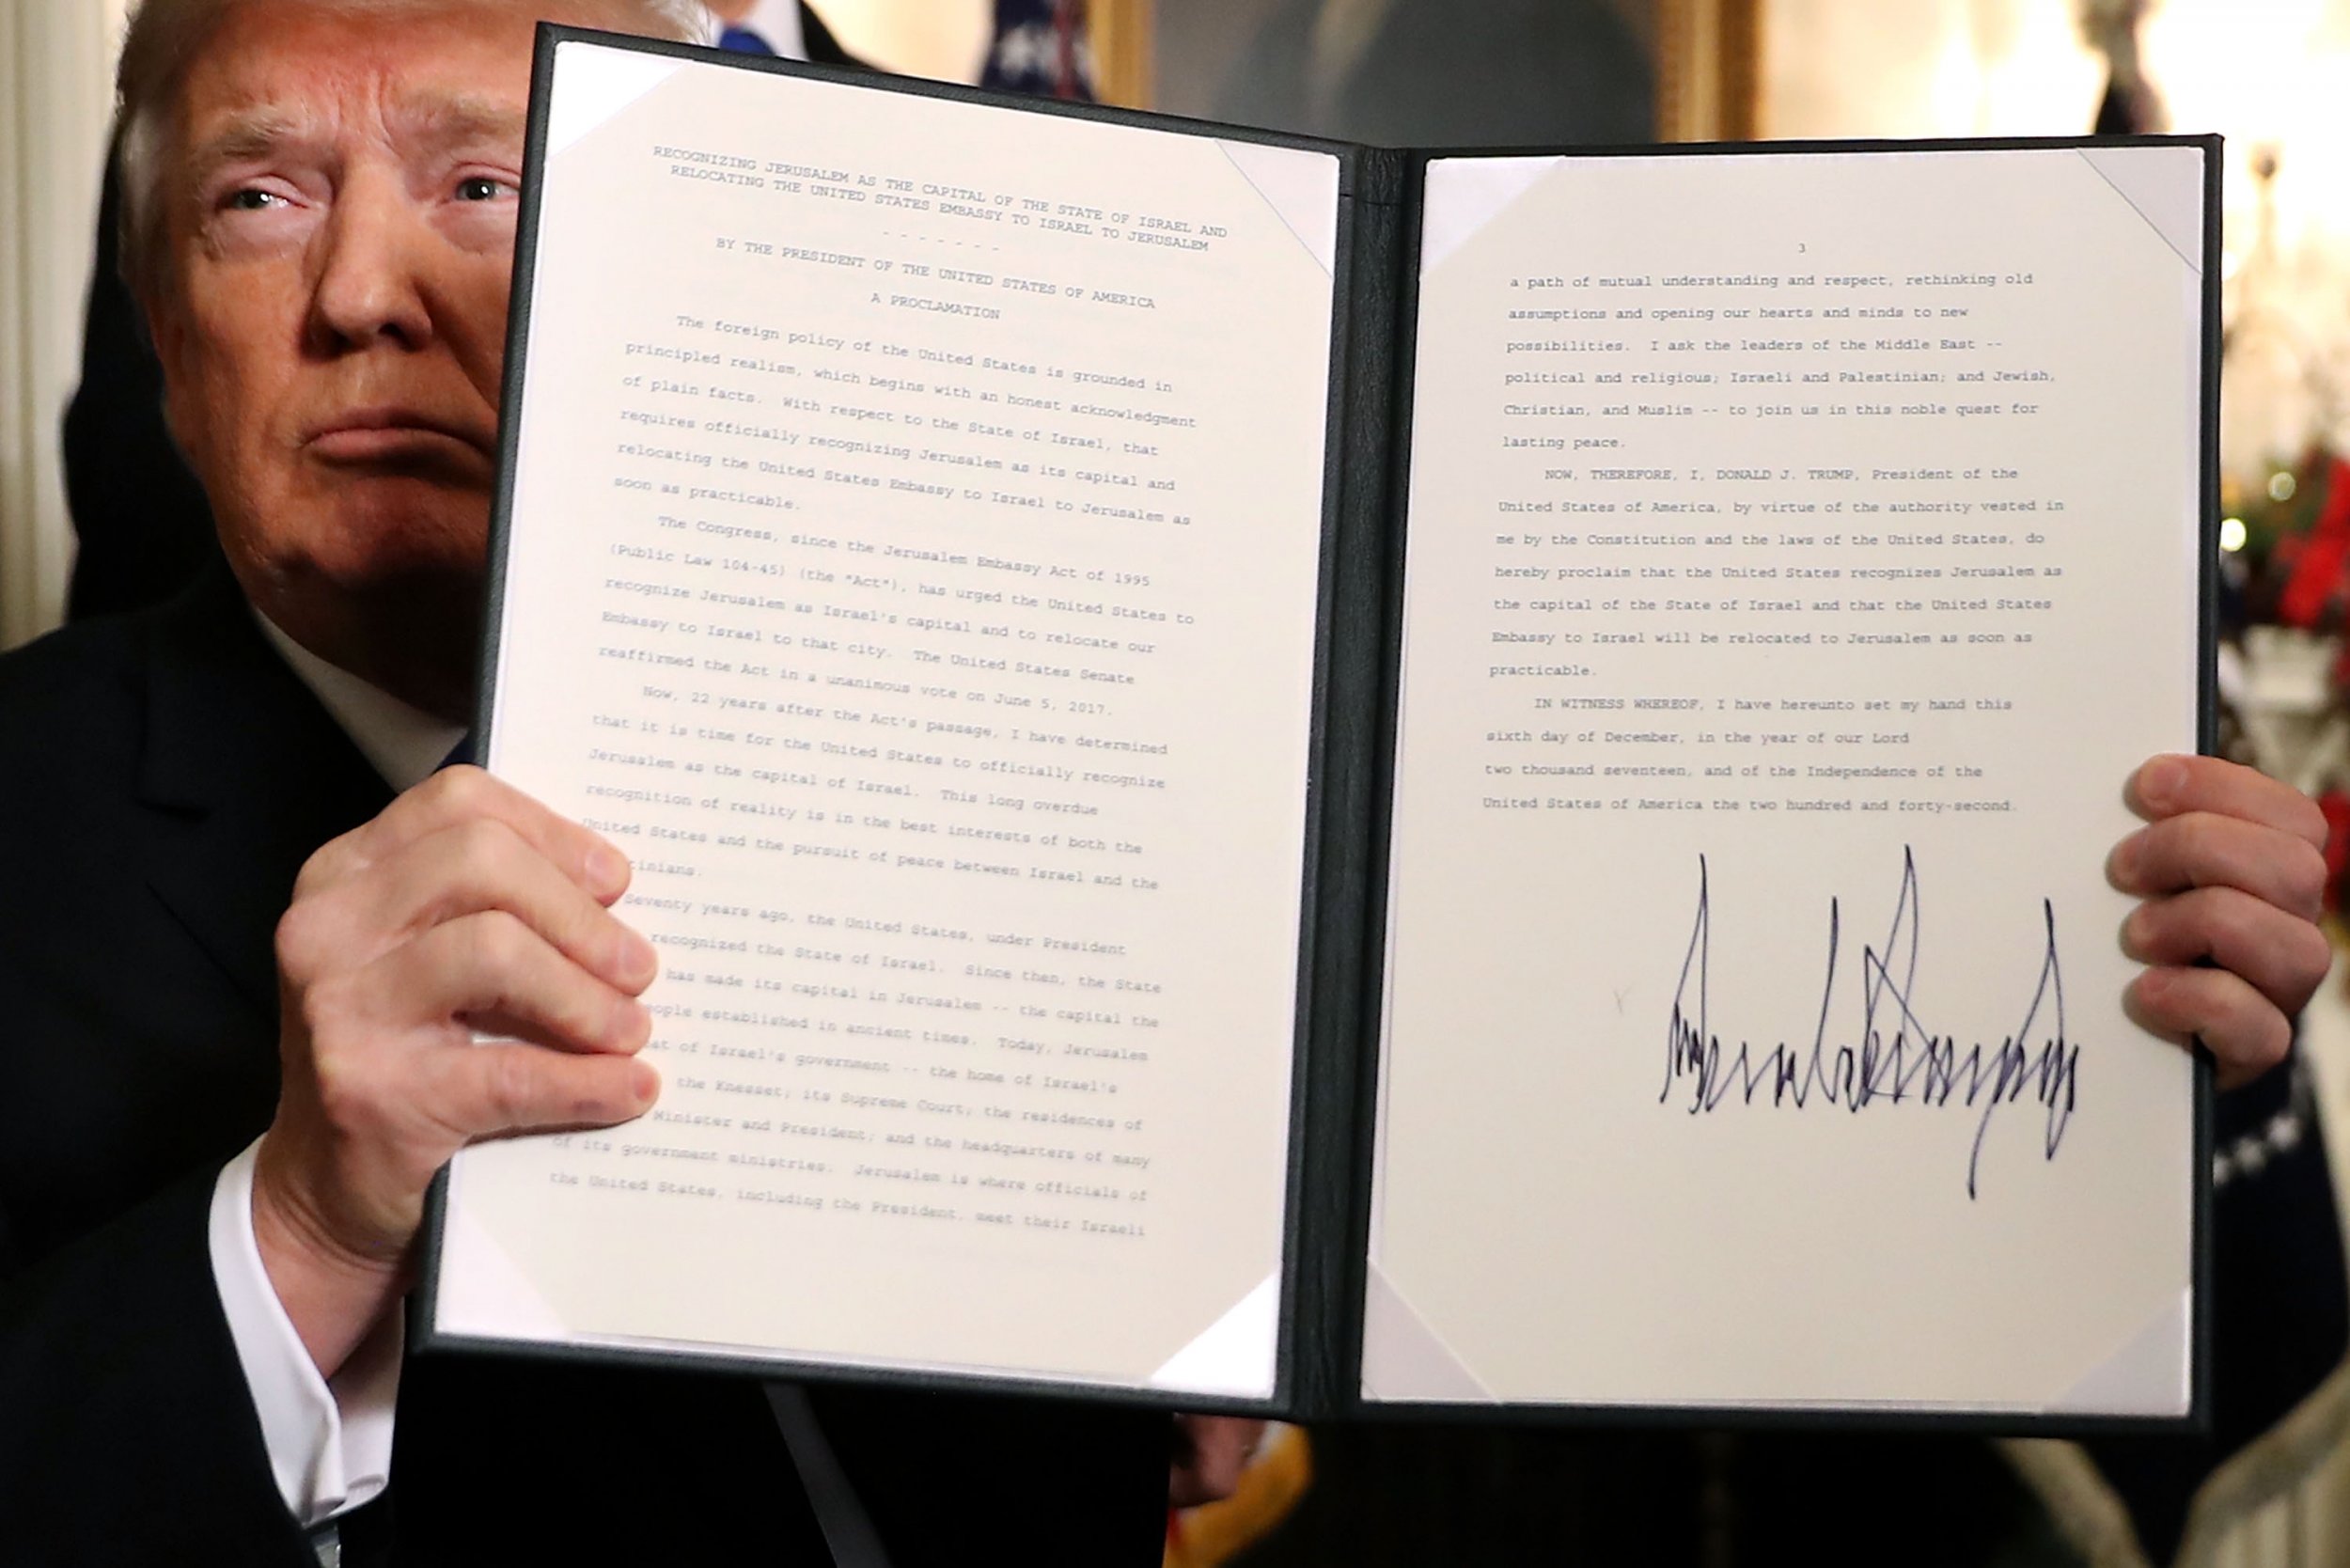 RECOGNIZING JERUSALEM AS THE CAPITAL OF THE STATE OF ISRAEL AND
RELOCATING THE UNITED STATES EMBASSY TO ISRAEL TO JERUSALEM
- - - - - - -
BY THE PRESIDENT OF THE UNITED STATES OF AMERICA
A PROCLAMATION
The foreign policy of the United States is grounded in
principled realism, which begins with an honest acknowledgment
of plain facts. With respect to the State of Israel, that
requires officially recognizing Jerusalem as its capital and
relocating the United States Embassy to Israel to Jerusalem as
soon as practicable.
The Congress, since the Jerusalem Embassy Act of 1995
(Public Law 104-45) (the "Act"), has urged the United States to
recognize Jerusalem as Israel's capital and to relocate our
Embassy to Israel to that city. The United States Senate
reaffirmed the Act in a unanimous vote on June 5, 2017.
Now, 22 years after the Act's passage, I have determined
that it is time for the United States to officially recognize
Jerusalem as the capital of Israel. This long overdue
recognition of reality is in the best interests of both the
United States and the pursuit of peace between Israel and the
tinians.
Seventy years ago, the United States, under President
recognized the State of Israel. Since then, the State
has made its capital in Jerusalem -- the capital the
eople established in ancient times. Today, Jerusalem
eat of Israel's government -- the home of Israel's
the Knesset; its Supreme Court; the residences of
Minister and President; and the headquarters of many
of its government ministries. Jerusalem is where officials of
the United States, including the President, meet their Israeli
3
a path of mutual understanding and respect, rethinking old
assumptions and opening our hearts and minds to new
possibilities. I ask the leaders of the Middle East --
political and religious; Israeli and Palestinian; and Jewish,
Christian, and Muslim -- to join us in this noble quest for
lasting peace.
NOW, THEREFORE, I, DONALD J. TRUMP, President of the
United States of America, by virtue of the authority vested in
me by the Constitution and the laws of the United States, do
hereby proclaim that the United States recognizes Jerusalem as
the capital of the State of Israel and that the United States
Embassy to Israel will be relocated to Jerusalem as soon as
practicable.
IN WITNESS WHEREOF, I have hereunto set my hand this
sixth day of December, in the year of our Lord
two thousand seventeen, and of the Independence of the
United States of America the two hundred and forty-second.